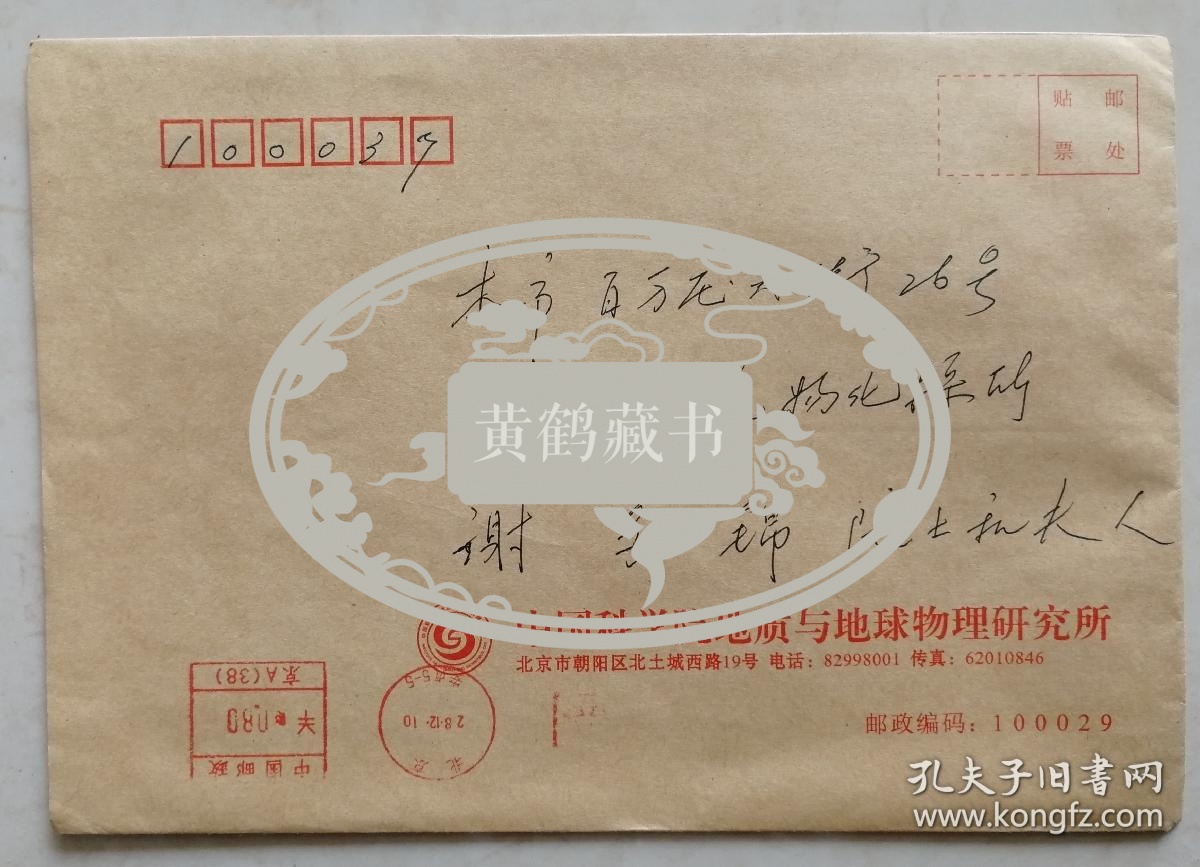 贴 邮
票 处
100037
本市百万庄大街26号
物化探所
黄鹤藏书
谢 锦 院士和夫人
中国科学院地质与地球物理研究所
北京市朝阳区北土城西路19号 电话：82998001 传真：62010846
京A(38)
¥ 080
中国邮政
28·12·10
北京
邮政编码：100029
孔夫子旧书网
www.kongfz.com